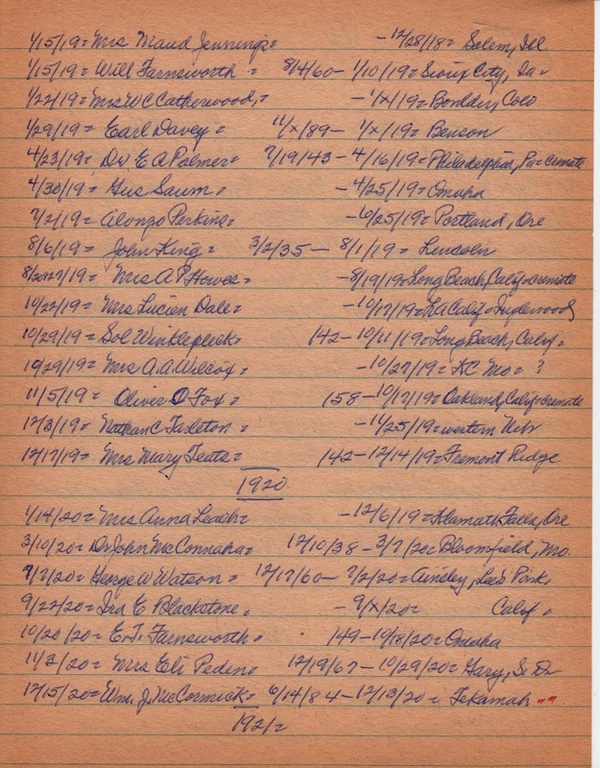 1/15/19= Mrs Maud Jennings= -12/28/18= Salem, Ill
1/15/19= Will Farnsworth = 8/4/60- 1/10/19= Sioux City, Ia.
1/22/19= Mrs W C Catherwood,= -1/x/19= Boulder, Colo
1/29/19= Earl Davey= 11/x/89- 1/x/19= Benson
4/23/19= Dr E A Palmer= 7/19/43- 4/16/19= Philadelphia, Pa= cremate
4/30/19= Gus Saum= -4/25/19= Omaha
7/2/19= Alonzo Perkins= -6/25/19= Portland, Ore
8/6/19= John King= 3/2/35- 8/1/19= Lincoln
8/20&27/19= Mrs A P Howes= -8/19/19= Long Beach, Calif= cremate
10/22/19= Mrs Lucien Dale= -10/17/19= LA Calif= Inglewood
10/29/19= Sol Winklepleck= 142- 10/11/19= Long Beach, Calif=
10/29/19= Mrs A.A. Wilcox= -10/27/19= KC Mo= ?
11/5/19= Oliver O Fox= 158-10/17/19= Oakland, Calif= cremate
12/3/19= Nathan C Tarleton= -11/25/19= western Nebr
12/17/19= Mrs Mary Teats= 142-12/14/19= Fremont Ridge
1920
1/14/20= Mrs Anna Leach= -12/6/19= Klamath Falls, Ore
3/10/20= Dr John McConnaha= 12/10/38-3/7/20= Bloomfield, Mo.
9/7/20= George W Watson= 12/17/60- 7/2/20= Ainsley, Lee's Park,
9/22/20= Ira E Blackstone= - 9/x/20= Calif.
10/20/20= E.T. Farnsworth= 149-10/18/20= Omaha
11/3/20= Mrs Eli Peden= 12/19/67-10/29/20= Gary, S. D
12/15/20= Wm. J. McCormick= 6/14/84-12/13/20= Tekamah ""
1921=